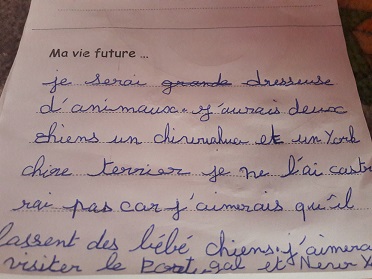 Ma vie future ...
je serai grande dresseuse
d'animaux. j'aurais deux
chiens un chiuruahua et un York
chire terrier je ne l'ai castr
rai pas car j'aimerais qu'il
fassent des bébé chiens. j'aimera
visiter le Portugal et New Y